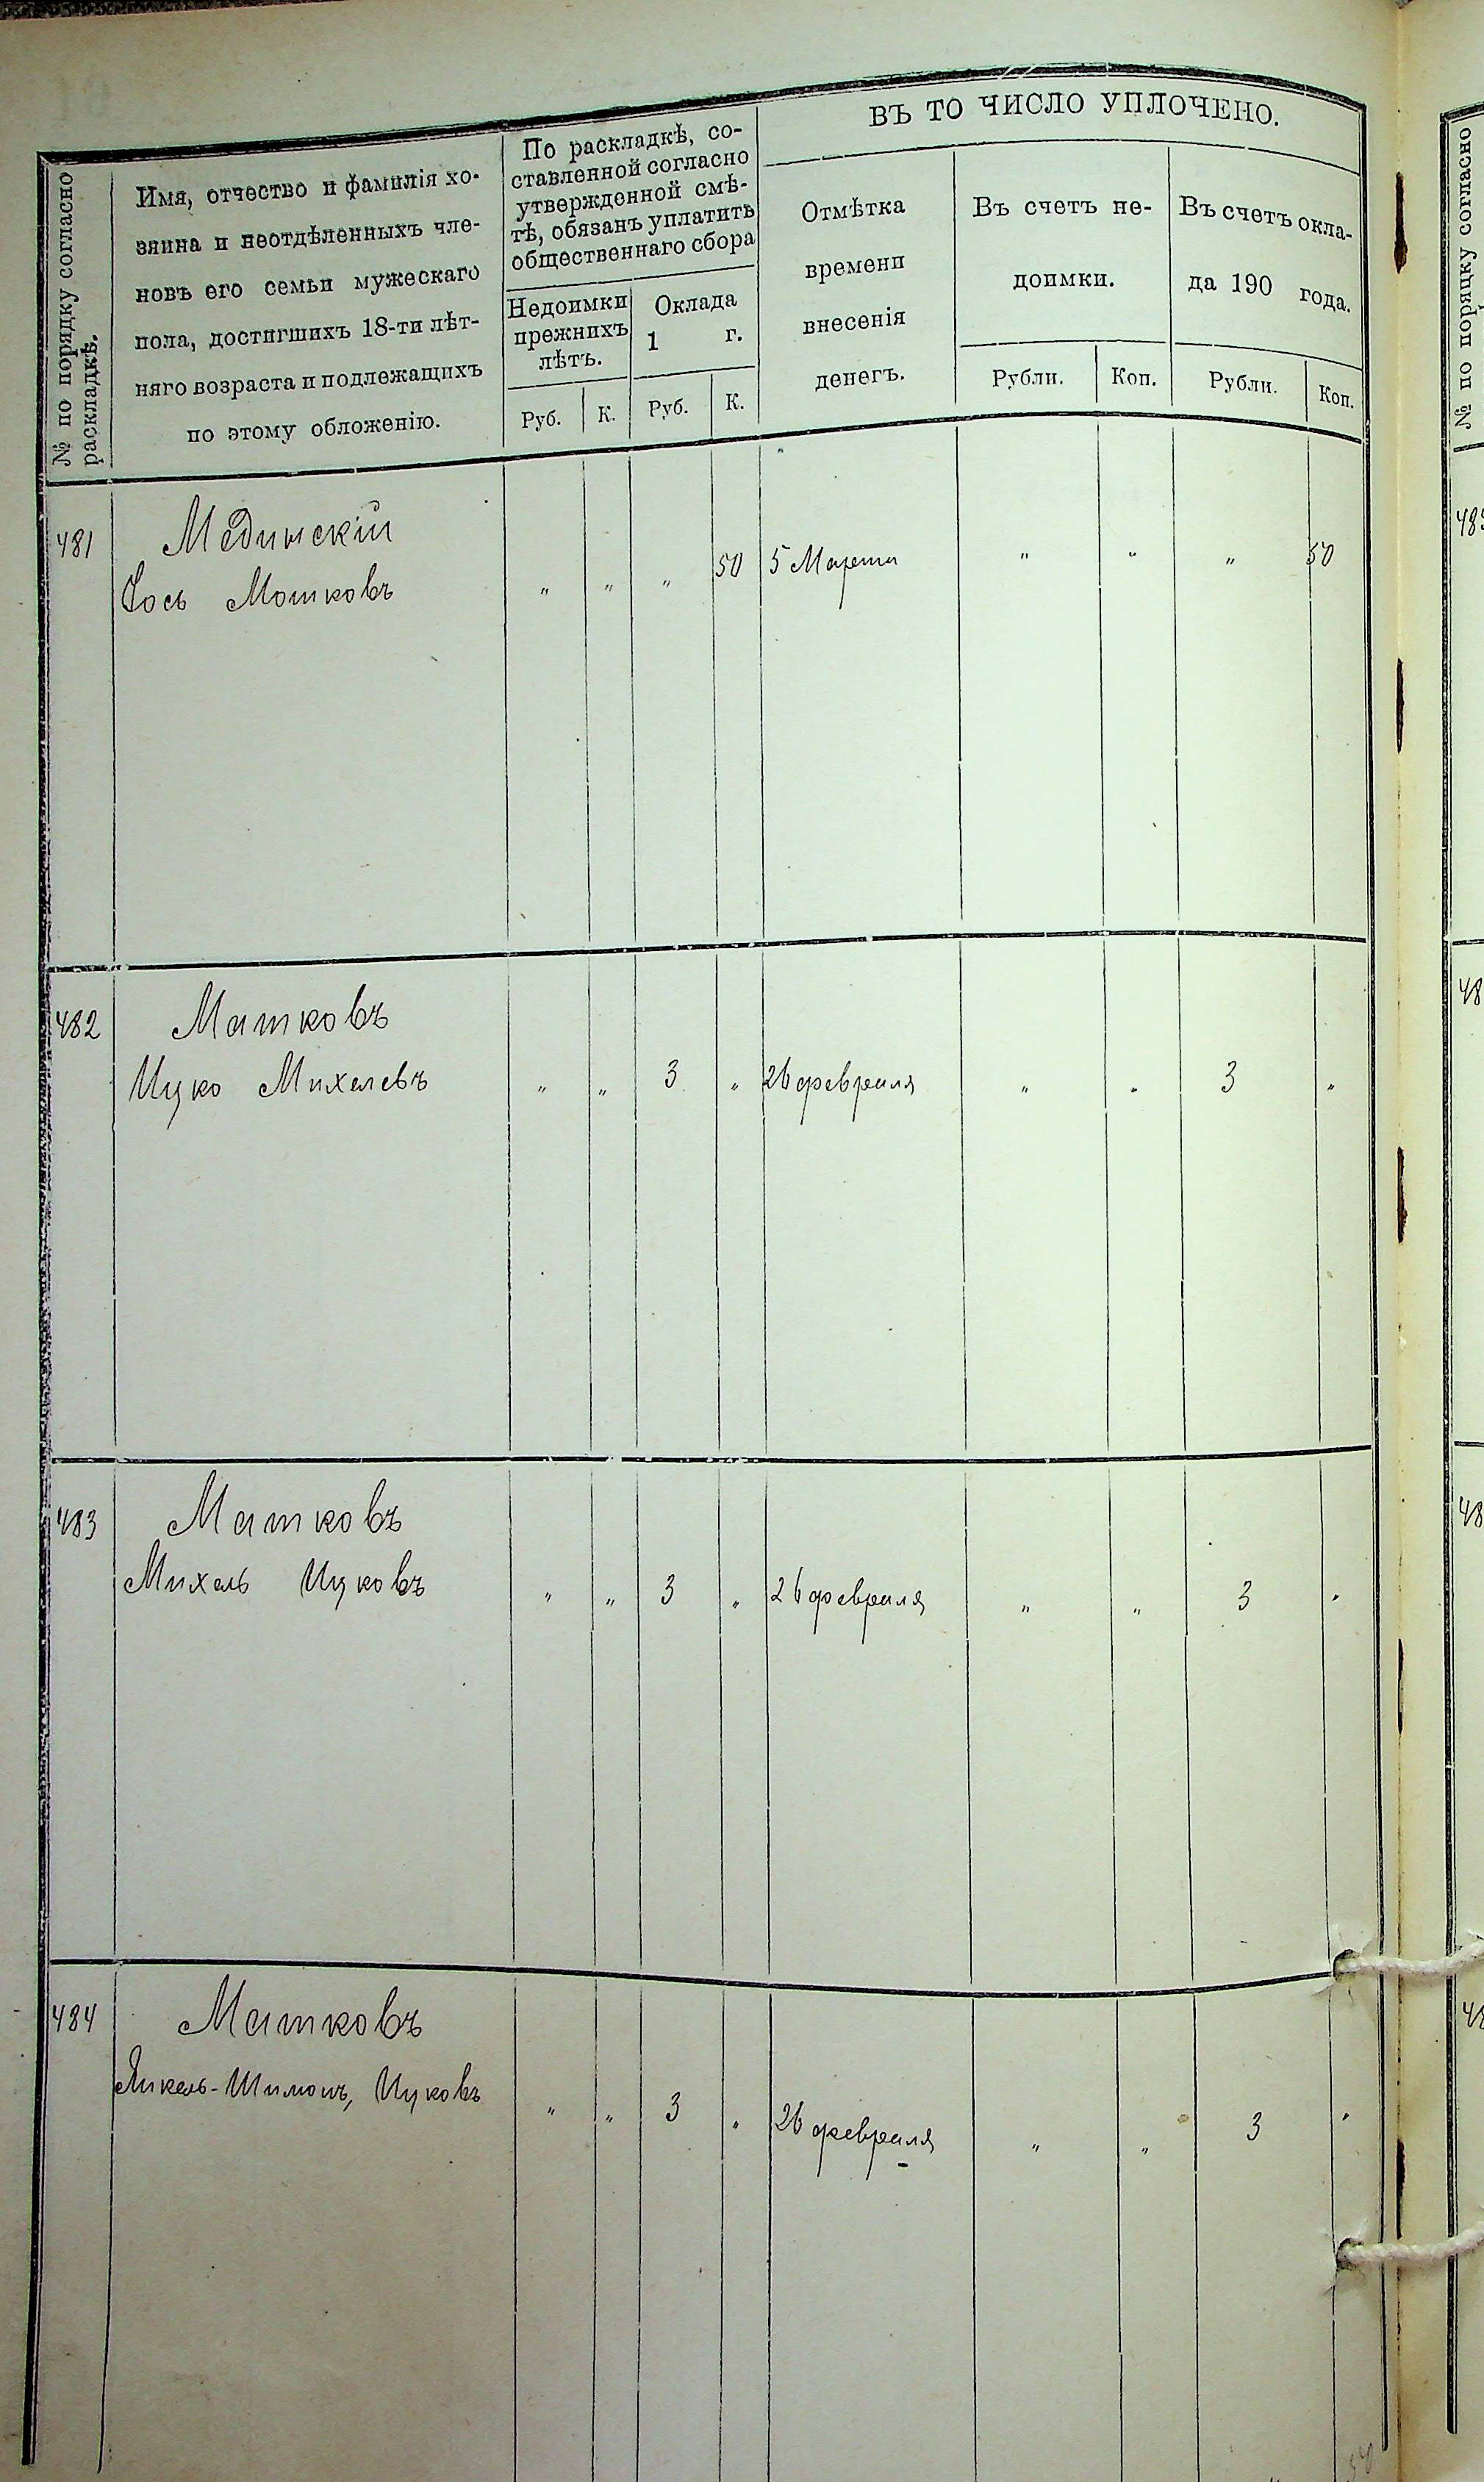 № по порядку согласно
раскладкѣ.
Имя, отчество и фамилія хо-
зяина и неотдѣленныхъ чле-
новъ его семьи мужескаго
пола, достигшихъ 18-ти лѣт-
няго возраста и подлежащихъ
по этому обложенію.
По раскладкѣ, со-
ставленной согласно
утвержденной смѣ-
тѣ, обязанъ уплатить
общественнаго сбора
Недоимки
прежнихъ
лѣтъ.
Руб. К.
Оклада
1 г.
Руб. К.
ВЪ ТО ЧИСЛО УПЛОЧЕНО.
Отмѣтка
времени
внесенія
денегъ.
Въ счетъ не-
доимки.
Рубли. Коп.
Въ счетъ окла-
да 190 года.
Рубли. Коп.
481 Мединскій
Іось Мошковъ " " " 50 5 Марта " " " 50
482 Матковъ
Ицко Михелевъ " " 3 " 26 февраля " " 3 "
483 Матковъ
Михель Ицковъ " " 3 " 26 февраля " " 3 "
484 Матковъ
Янкель-Шимонъ, Ицковъ " " 3 " 26 февраля " " 3 "
№ по порядку согласно